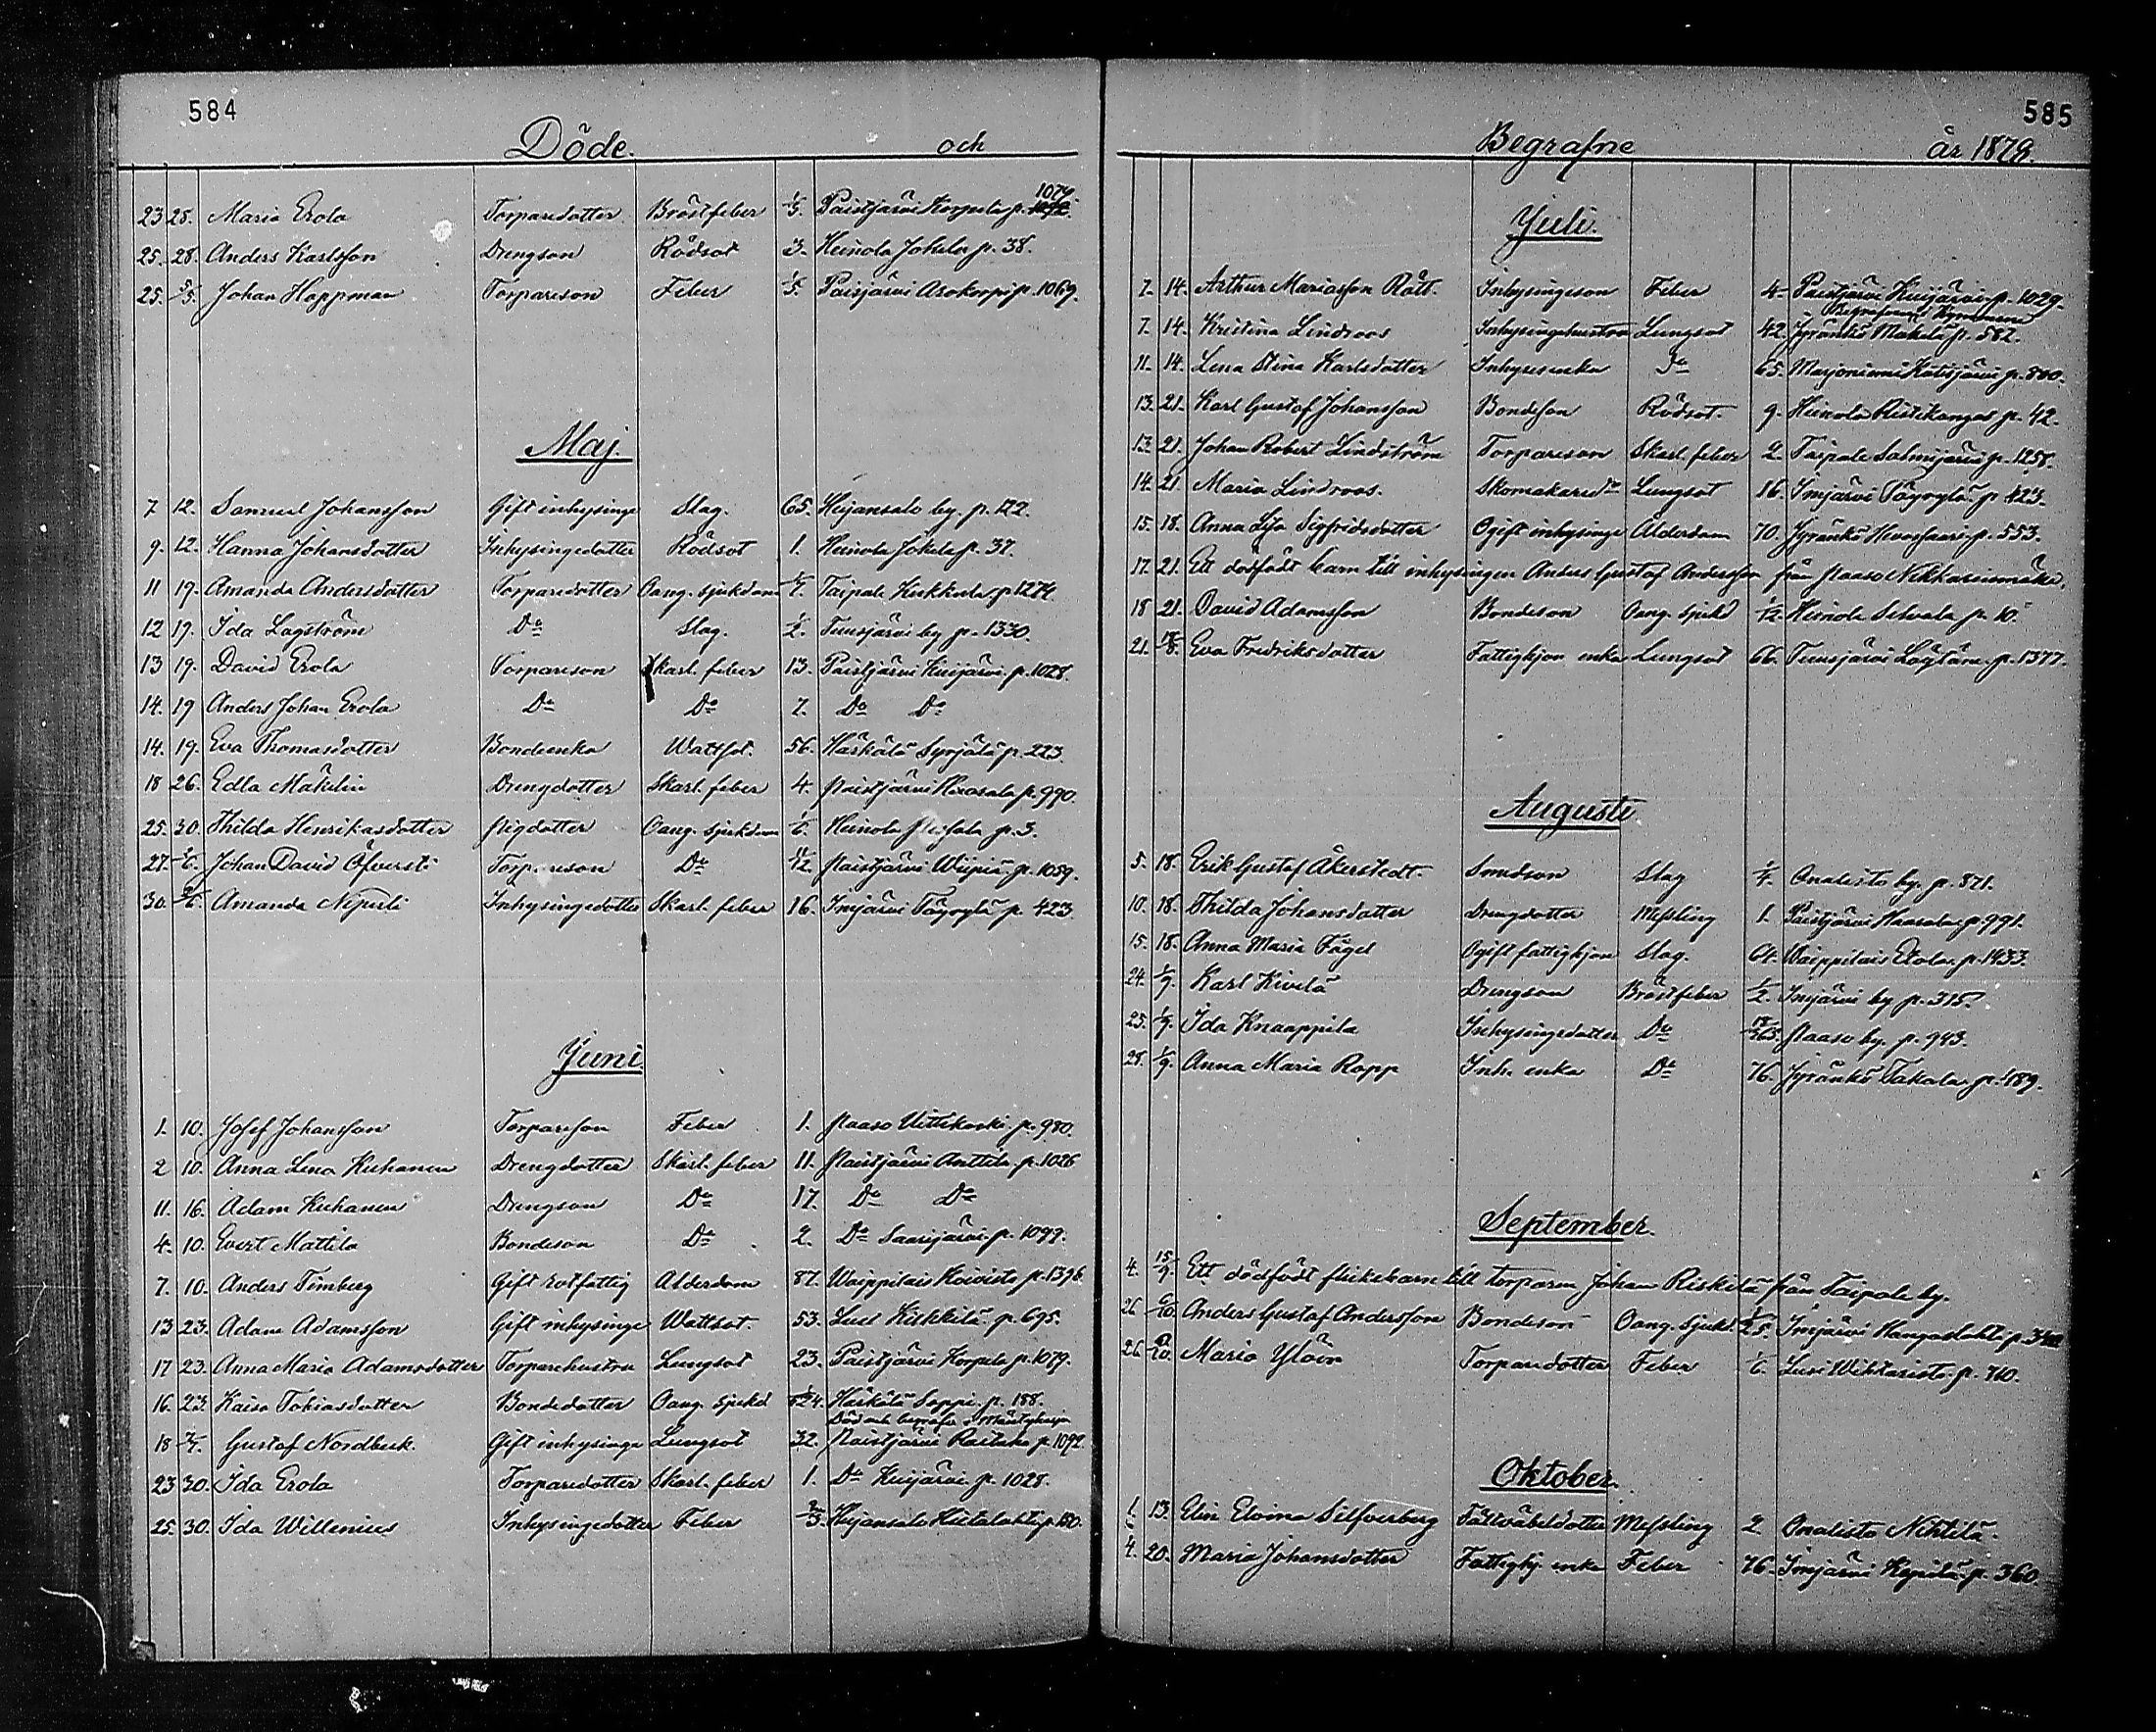 584
Döde. och
23 28. Maria Erola Torparedotter Bröstfeber 1/3. Paistjärvi Korpela p. 1079
25. 28. Anders Karlsson Drengson Rödsot 3. Heinola Jokela p. 38.
25. 5/5. Johan Hoppman Torpareson Feber 1/5. Paisjärvi Arokorpi p. 1069.
Maj.
7 12. Samuel Johansson Gift inhysinge Slag. 65. Heijansalo by. p. 122.
9. 12. Hanna Johansdotter Inhysingedotter Rödsot 1. Heinola Jokela p. 37.
11 19. Amanda Andersdotter Torparedotter Oang. sjukdom Taipale Kukkula p. 1274.
12 19. Ida Lagström Do Slag. 1/2. Tuusjärvi by p. 1330.
13 19. David Erola Torpareson Skarl. feber 13. Paistjärvi Kuijärvi p. 1028.
14. 19 Anders Johan Erola Do Do 7. Do Do
14. 19. Eva Thomasdotter Bondeenka Wattsot. 56. Härkälä Syrjälä p. 223.
18 26. Edla Mäkelin Drengdotter Skarl. feber 4. Paistjärvi Haasala p. 990.
25. 30. Thilda Henriksdotter Pigdotter Oang. sjukdom 1/6. Heinola p. 3.
27. 2/6. Johan David Öfversti Torpareson Do 11/12. Paistjärvi Wiipiä p. 1059.
30. 2/6. Amanda Nyperi Inhysingedotter Skarl. feber 16. Imjärvi Täyrylä p. 423.
Juni.
1. 10. Josef Johansson Torpareson Feber 1. Paaso Uittikoski p. 980.
2 10. Anna Lena Kuhanen Drengdotter Skarl. feber 11. Paistjärvi Anttila p. 1026
11. 16. Adam Kuhanen Drengson Do 17. Do Do
4. 10. Evert Mattila Bondeson Do 2. Do Saarijärvi p. 1099.
7. 10. Anders Timberg Gift rotfattig Alderdom 87. Waippilais Koivisto p. 1396.
13 23. Adam Adamsson Gift inhysinge Wattsot. 53. Lusi Kirkkilä p. 695.
17 23. Anna Maria Adamsdotter Torparehustru Lungsot 23. Paistjärvi Korpela p. 1079.
16. 23. Kaisa Tobiasdotter Bondedotter Oang. sjukd 1/24. Härkälä Seppi. p. 188.
Död och begrafn. i Mäntyharju
18 7/7. Gustaf Nordbeck. Gift inhysinge Lungsot 32. Paistjärvi Raitako p. 1092.
23 30. Ida Erola Torparedotter Skarl. feber 1. Do Kuijärvi p. 1028.
25. 30. Ida Willenius Inhysingedotter Feber 2/3. Heijansalo Hietalahti p. 150.
585
Begrafne år 1879.
Juli.
7. 14. Arthur Mariasson Rått. Inhysingeson Feber 4. Paistjärvi Kuijärvi p. 1029.
7. 14. Kristina Lindroos Inhysingehustru Lungsot 42. Jyränkö Mäkelä p. 582.
11. 14. Lena Stina Karlsdotter Inhysesenka Do 65. Marjoniemi Kälsjärvi p. 800.
13. 21. Karl Gustaf Johansson Bondeson Rödsot. 9. Heinola Ristikangas p. 42.
13. 21. Johan Robert Lindström Torpareson Skarl. feber 2. Taipale Salmijärvi p. 1258.
14. 21. Maria Lindroos. Skomakared:r Lungsot 16. Imjärvi Täyrylä p. 423.
15. 18. Anna Lisa Sigfridsdotter Ogift inhysinge Ålderdom 70. Jyränkö Hevossaari p. 553.
17. 21. Ett dödfödt barn till inhysingen Anders Gustaf Andersson från Paaso Nikkarinmäki.
18 21. David Adamsson Bondeson Oang. sjukd 1/12. Heinola Selvala p. 10.
21. 18/8. Eva Fredriksdotter Fattighjon enka Lungsot 66. Tuusjärvi p. 1377.
Augusti
5. 18. Erik Gustaf Åkerstedt. Smedson Slag Onalisto by. p. 871.
10. 18. Thilda Johansdotter Drengdotter Messling 1. Paistjärvi Haasala p. 991.
15. 18. Anna Maria Fågel Ogift fattighjon Slag. 64. Waippilais Etola p. 1433.
24. 1/9. Karl Kivelä Drengson Bröstfeber 1/2. Imjärvi by p. 315.
25. 1/9. Ida Knaappila Inhysingedotter Do 18/365. Paaso by. p. 943.
28. 1/9. Anna Maria Rapp Inh. enka Do 76. Jyränkö Takala p. 489.
September.
4. 15/9. Ett dödfödt flickebarn till torparen Johan Riskilä från Taipale by.
26. 6/10. Anders Gustaf Andersson Bondeson Oang. sjukd. Imjärvi Hangaslahti p.
26. 6/10. Maria Ylöin Torparedotter Feber 1/6. Lusi Wihtaristo p. 760.
Oktober.
1. 13. Elin Elvina Silfverberg Fältväbeldotter Messling 2. Onalisto Nihtilä.
4. 20. Maria Johansdotter Fattighj. enka Feber 76. Imjärvi Kepilä p. 360.